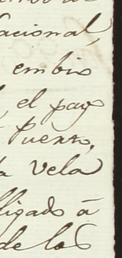 acional,
embio
, el pag
Puerto,
a vela
lligado á
de los